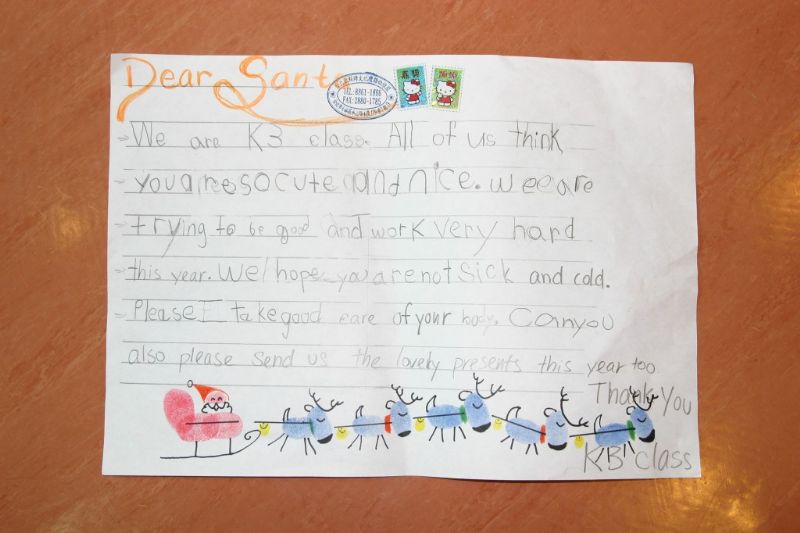 Dear Santa
TEL:8861-1898
FAX:2880-1785
We are K3 class. All of us think
you are so cute and nice. we are
trying to be good and work very hard
this year. We hope you are not sick and cold.
Please take good care of your body. Can you
also please send us the lovely presents this year too
Thank you
KB class